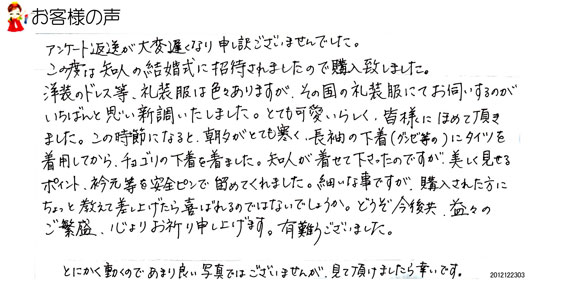 お客様の声
アンケート返送が大変遅くなり申し訳ございませんでした。
この度は知人の結婚式に招待されましたので購入致しました。
洋装のドレス等、礼装服は色々ありますが、その国の礼装服にてお伺いするのが
いちばんと思い新調いたしました。とても可愛いらしく、皆様にほめて頂き
ました。この時節になると、朝夕がとても寒く、長袖の下着(グンゼ等の)にタイツを
着用してから、チョゴリの下着を着ました。知人が着せて下さったのですが、美しく見せる
ポイント、衿元等を安全ピンで留めてくれました。細いな事ですが、購入された方に
ちょっと教えて差し上げたら喜ばれるのではないでしょうか。どうぞ今後共、益々の
ご繁盛、心よりお祈り申し上げます。有難うございました。
とにかく動くのであまり良い写真ではございませんが、見て頂けましたら幸いです。
2012122303